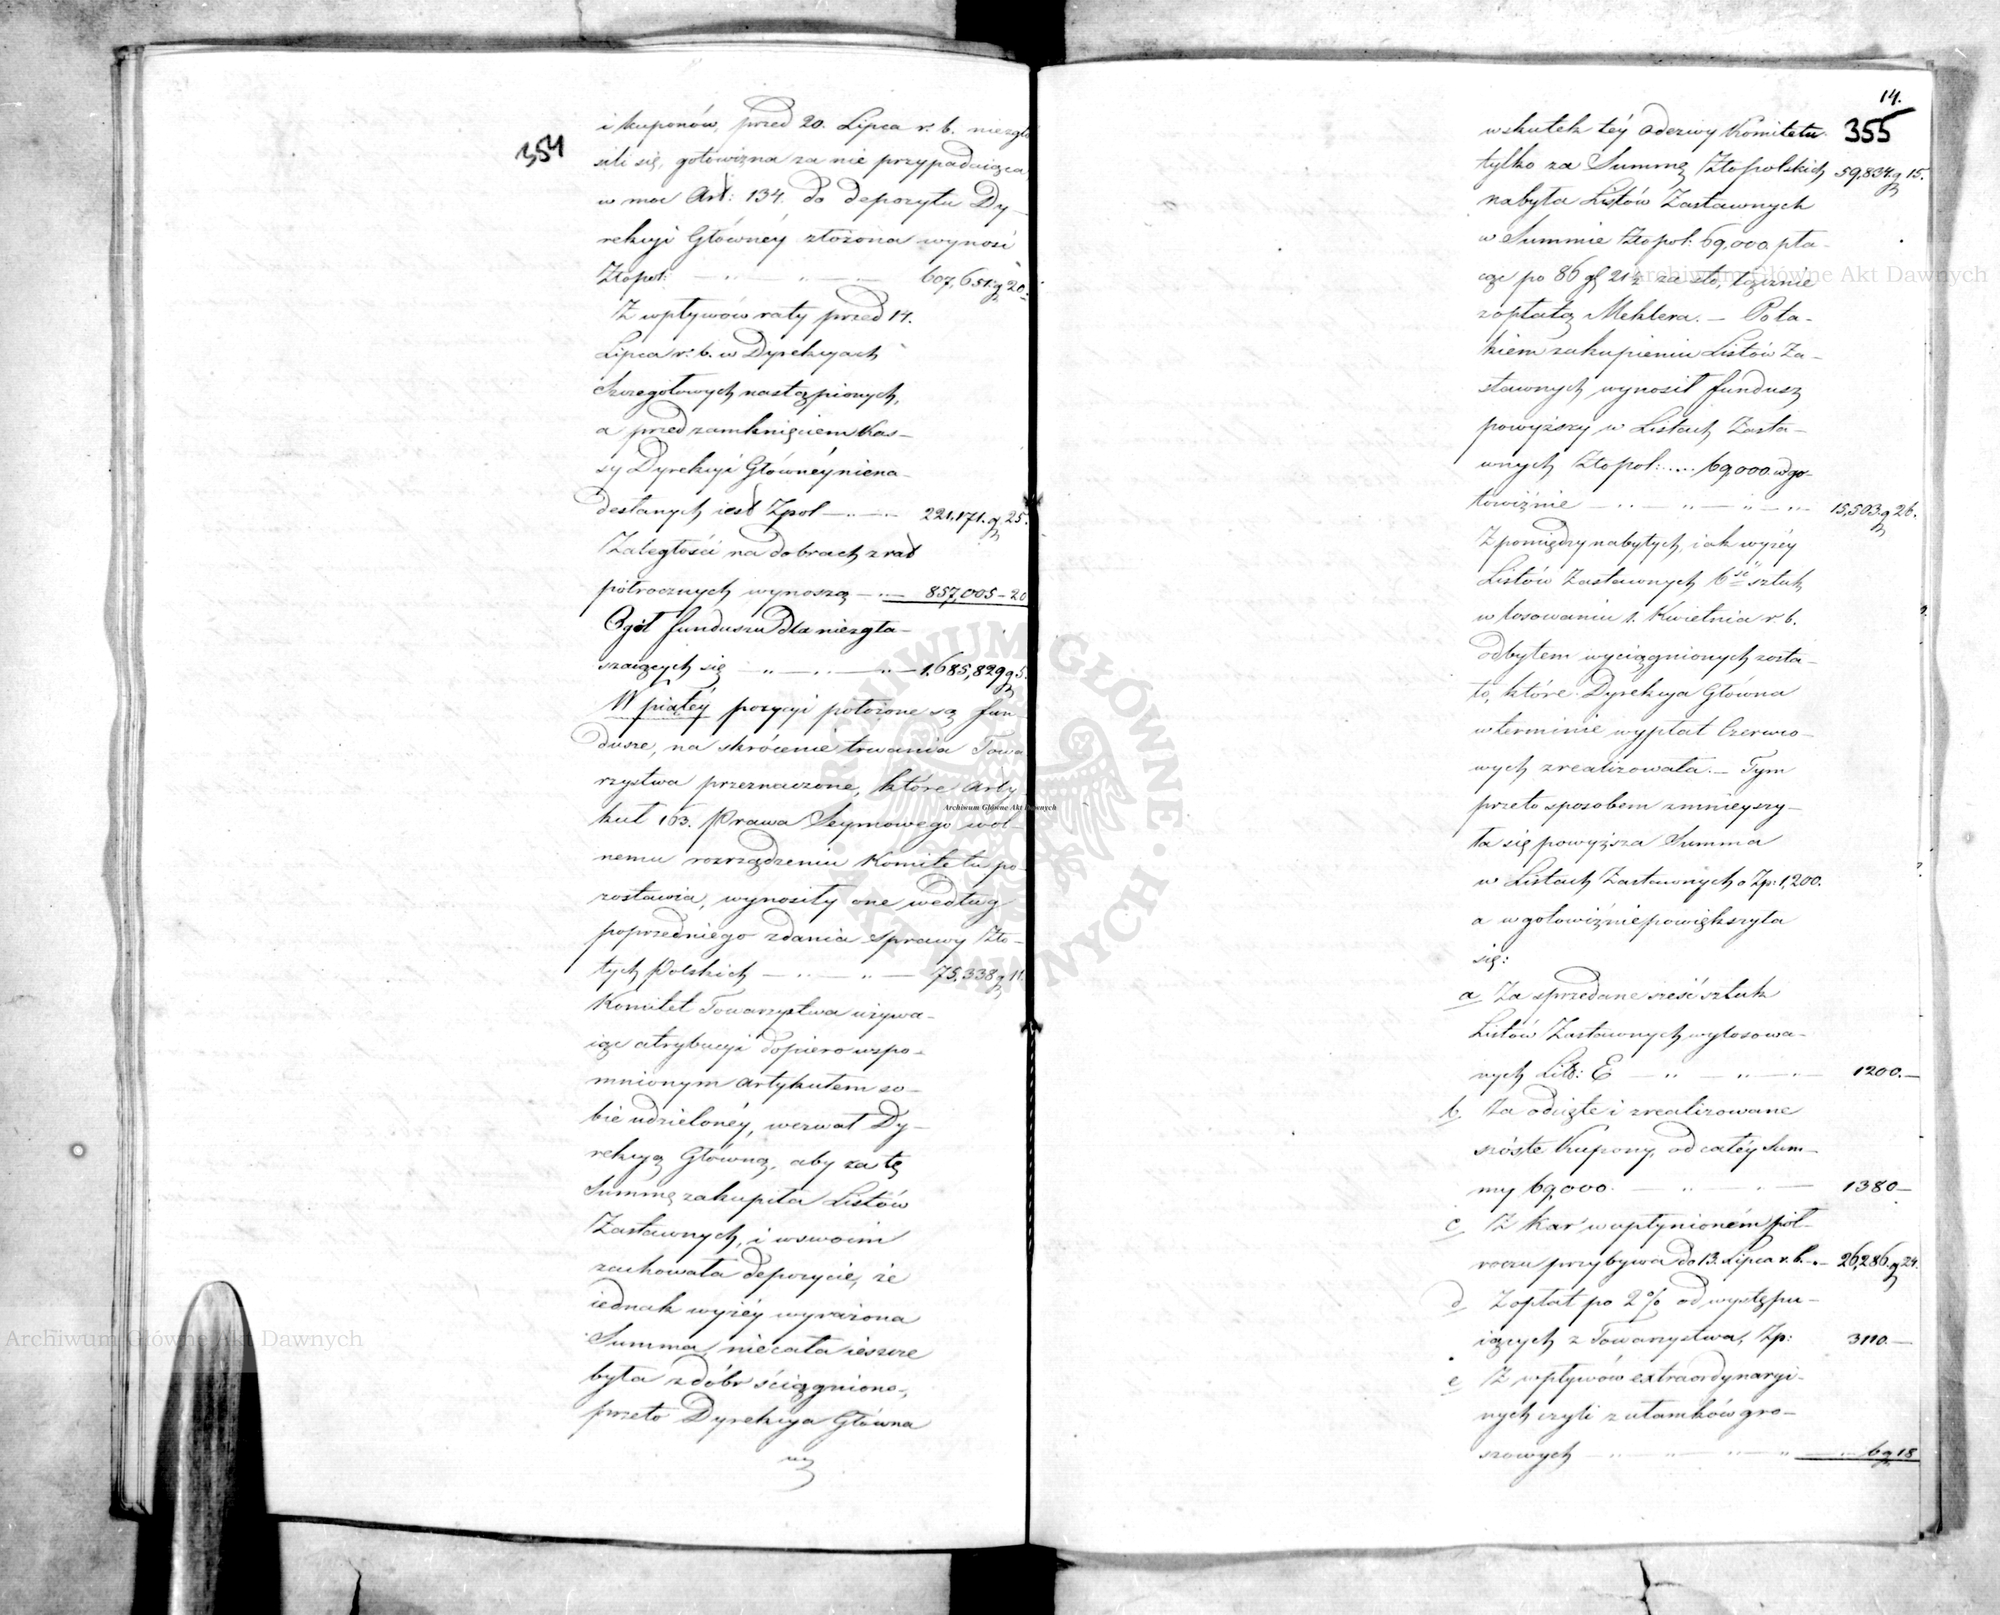 354
i kuponów, przed 20. Lipca r: b. niezgło
sili się, gotowizna za nie przypadaiąca,
w moc Art: 134. do depozytu Dy-
rekcyi Główney złożona wynosi
Złopol: 607,651. g 20.
Z wpływów raty przed 14.
Lipca r: b. w Dyrekcyach
Szczegółowych nastąpionych,
a przed zamknięciem Kas-
sy Dyrekcyi Główney niena-
desłanych iest Zpol 221,171. g 25.
Zaległości na dobrach z rat
półrocznych wynoszą 857,005-20
Ogół funduszu dla niezgła-
szaiących się 1,685,829 g 5.
W piątéy pozycyi położone są fun
dusze, na skrócenie trwania Towa
rzystwa przeznaczone, które Arty
kuł 163. Prawa Seymowego wol-
nemu rozrządzeniu Komitetu po-
zostawia, wynosiły one według
poprzedniego zdania sprawy Zło-
tych Polskich 75,338 g 11.
Komitet Towarzystwa używa-
iąc atrybucyi dopiero wspo-
mnionym artykułem so-
bie udzielonéy, wezwał Dy-
rekcyą Główną, aby za tę
Summę zakupiła Listów
Zastawnych, i w swoim
zachowała depozycie, że
iednak wyżéy wyrażona
Summa, niecała ieszcze
była z dóbr ściągniona,
przeto Dyrekcya Główna
14.
355
wskutek téy odezwy Komitetu
tylko za Summę Złopolskich 59,834. g 15.
nabyła Listów Zastawnych
w Summie Złopol: 69,000 pła-
cąc po 86 gr 21½ za sto, łącznie
z opłatą Meklera. - Po ta-
kiem zakupieniu Listów Za-
stawnych wynosił fundusz
powyższy w Listach Zasta-
wnych Złopol: 69,000. w go-
towiźnie 15,503. g 26.
Z pomiędzy nabytych, iak wyżéy
Listów Zastawnych 6ść sztuk
w losowaniu 1. Kwietnia r. b.
odbytem wyciągnionych zosta-
ło, które Dyrekcya Główna
w terminie wypłat Czerwco-
wych zrealizowała. - Tym
przeto sposobem zmnieyszy-
ła się powyższa Summa
w Listach Zastawnych o Zp: 1,200.
a w gotowiźnie powiększyła
się:
a Za sprzedane sześć sztuk
Listów Zastawnych wylosowa-
nych Lit: E 1200.-
b Za odcięte i zrealizowane
szóste Kupony, od całéy Sum-
my 69,000. 1380-
c Z kar w upłynioném pół-
roczu przybywa do 13. Lipca r. b. 26,286. g 24.
d Z opłat po 2% od występu-
iących z Towarzystwa, Zp: 3110.-
e Z wpływów extraordynaryi-
nych czyli z ułamków gro-
szowych 6 g 18
Archiwum Główne Akt Dawnych
Archiwum Główne Akt Dawnych
Archiwum Główne Akt Dawnych
ARCHIWUM GŁÓWNE AKT DAWNYCH